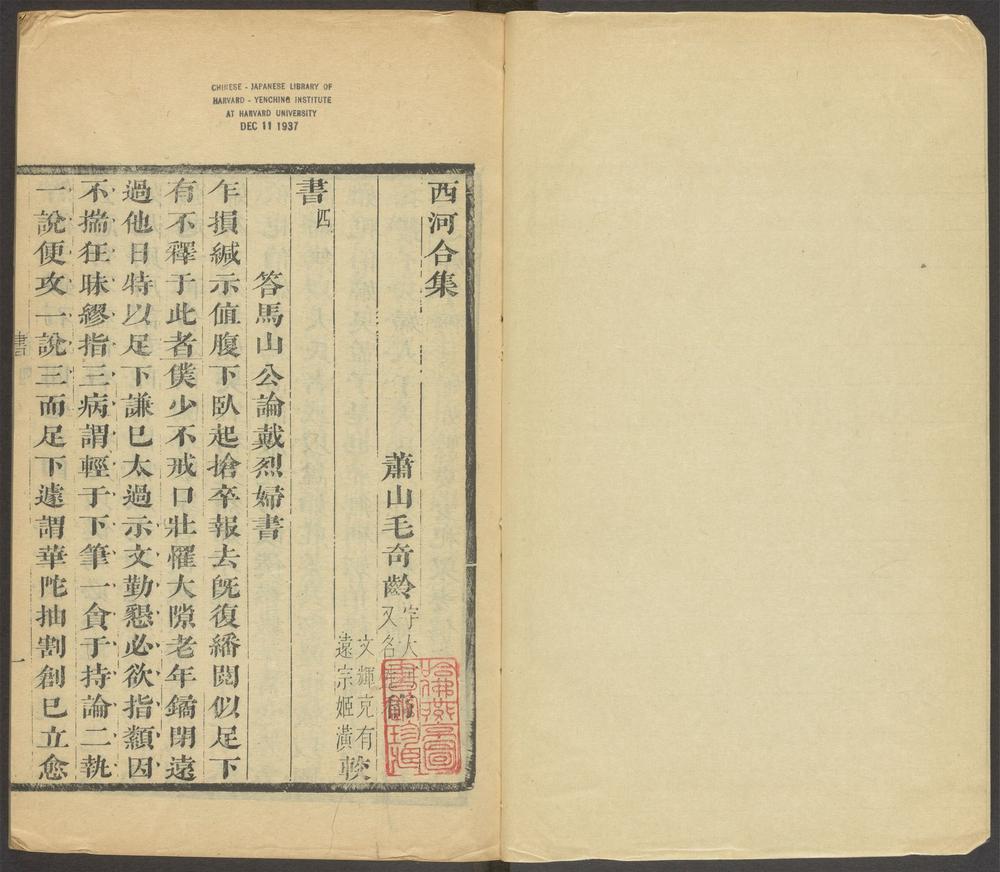 CHINESE - JAPANESE LIBRARY OF
HARVARD - YENCHING INSTITUTE
AT HARVARD UNIVERSITY
DEC 11 1937
西河合集
蕭山毛奇齡字大
又名
文輝克有
遠宗姬潢較
書四
答馬山公論戴烈婦書
乍損緘示值腹下臥起搶卒報去旣復繙閱似足下
有不釋于此者僕少不戒口壯罹大隙老年鐍閉遠
過他日特以足下謙巳太過示文勤懇必欲指纇因
不揣狂昧繆指三病謂輕于下筆一貪于持論二執
一說便攻一說三而足下遽謂華陀抽割創巳立愈
書四
一